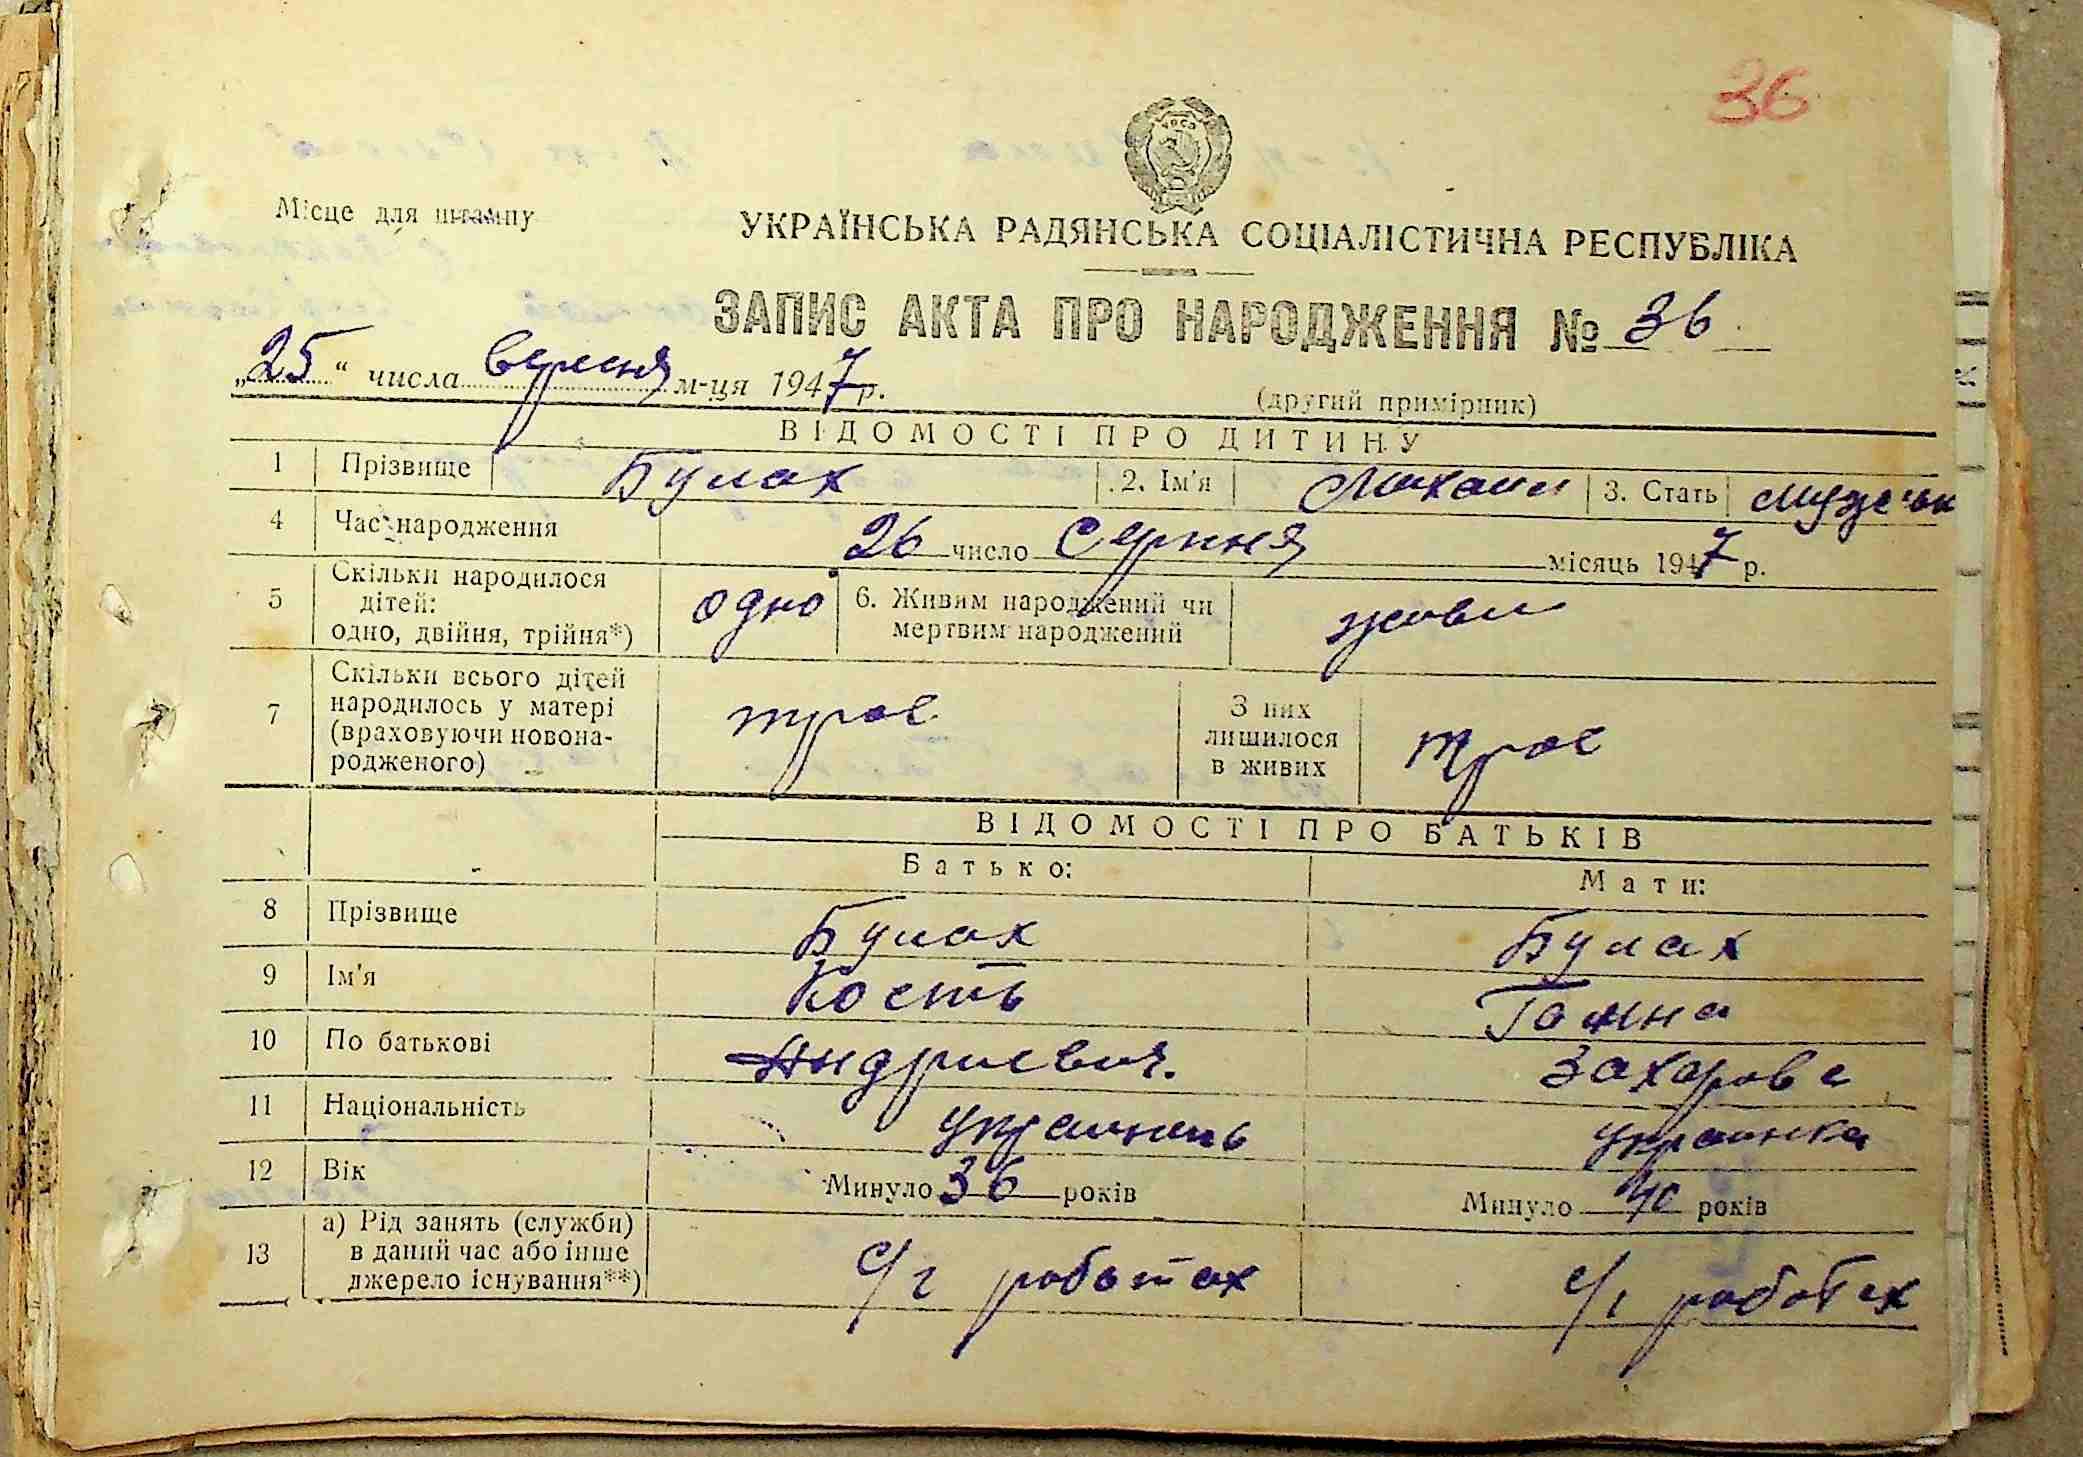 36
УРСР
Місце для штампу
УКРАЇНСЬКА РАДЯНСЬКА СОЦІАЛІСТИЧНА РЕСПУБЛІКА
ЗАПИС АКТА ПРО НАРОДЖЕННЯ № 36
„25“ числа вересня м-ця 1947 р.
(другий примірник)
ВІДОМОСТІ ПРО ДИТИНУ
1 Прізвище Булах 2. Ім'я Михаил 3. Стать
4 Час народження 26 число Серпня місяць 1947 р.
5 Скільки народилося
дітей:
одно, двійня, трійня*)
одно
6. Живим народжений чи
мертвим народжений
живим
7 Скільки всього дітей
народилось у матері
(враховуючи новона-
родженого)
троє
З них
лишилося
в живих
троє
ВІДОМОСТІ ПРО БАТЬКІВ
Батько: Мати:
8 Прізвище Булах Булах
9 Ім'я Кость Ганна
10 По батькові Андриевич. Захарова
11 Національність украинець украинка
12 Вік Минуло 36 років Минуло 40 років
13 а) Рід занять (служби)
в даний час або інше
джерело існування**)
с/г роботах с/г роботах